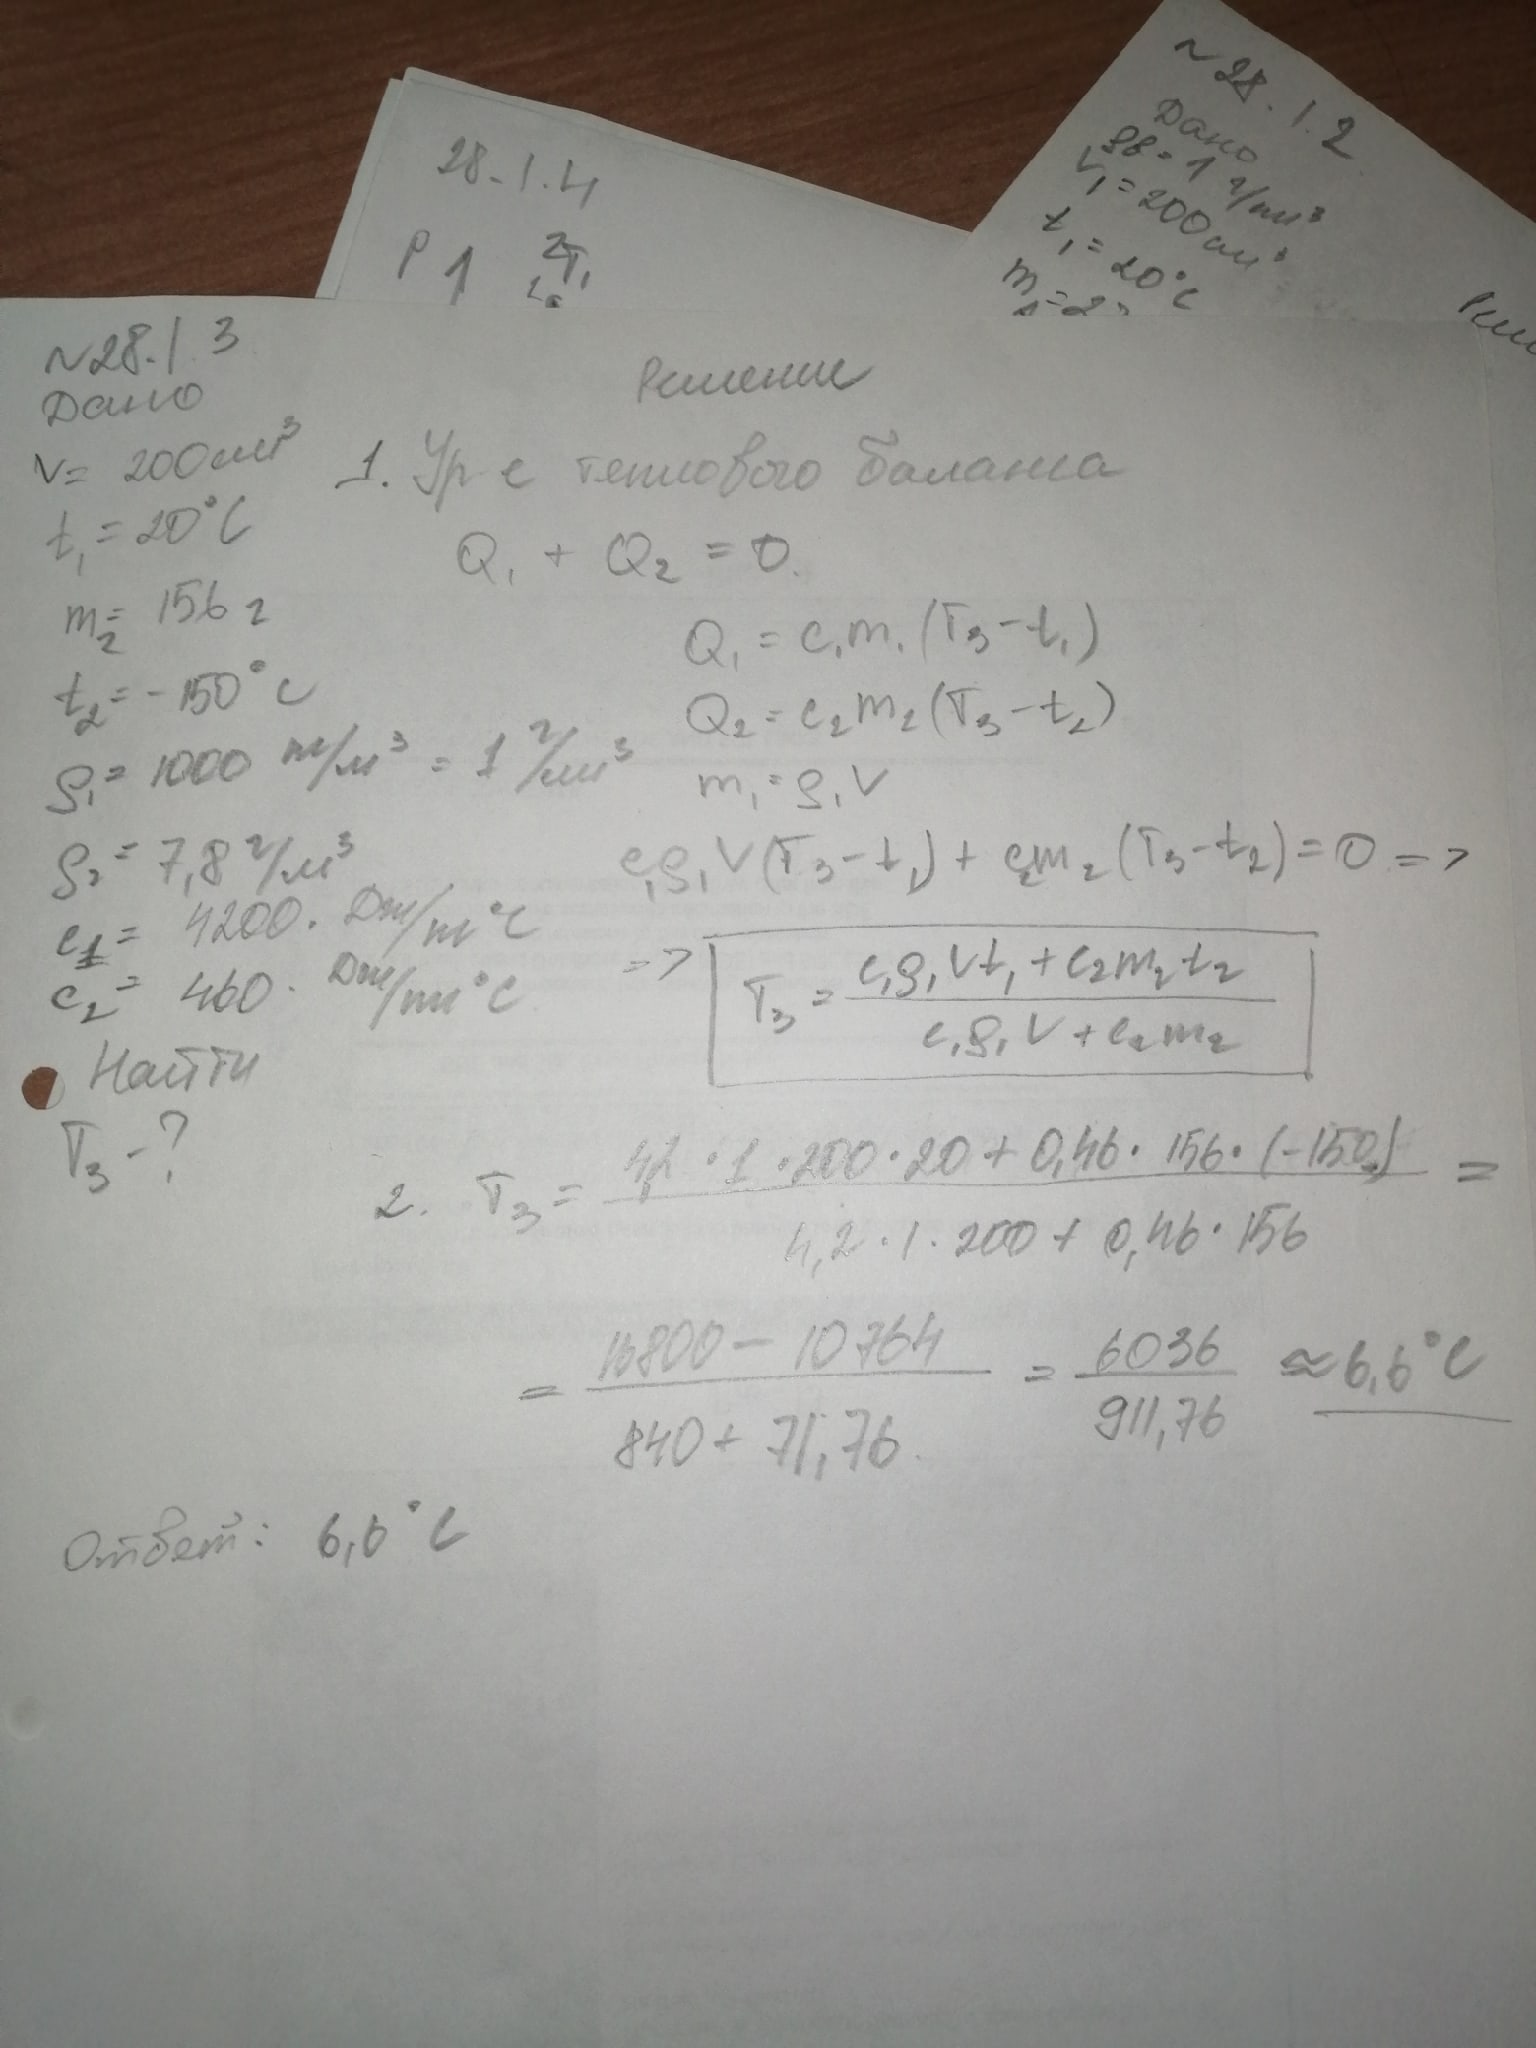 ~28.1.2
Дано
ρв = 1 г/см³
V₁ = 200 см³
t₁ = 20°C
28-1.4
P 1 2T₁
~28.1.3
Дано
V = 200 см³
t₁ = 20°C
m₂ = 156 г
t₂ = -150°C
ρ₁ = 1000 кг/м³ = 1 г/см³
ρ₂ = 7,8 г/м³
c₁ = 4200 · Дж/кг°C
c₂ = 460 · Дж/кг°C
Найти
T₃ - ?
Решение
1. Ур е теплового баланса
Q₁ + Q₂ = 0.
Q₁ = c₁m₁(T₃ - t₁)
Q₂ = c₂m₂(T₃ - t₂)
m₁ = ρ₁V
c₁ρ₁V(T₃ - t₁) + c₂m₂(T₃ - t₂) = 0 =>
=> T₃ = (c₁ρ₁Vt₁ + c₂m₂t₂)/(c₁ρ₁V + c₂m₂)
2. T₃ = (4,2 · 1 · 200 · 20 + 0,46 · 156 · (-150))/(4,2 · 1 · 200 + 0,46 · 156) =
= (16800 - 10764)/(840 + 71,76) = 6036/911,76 ≈ 6,6°C
Ответ: 6,6°C